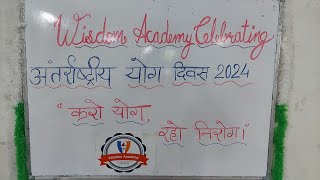 Wisdom Academy Celebrating
अंतर्राष्ट्रीय योग दिवस 2024
"करो योग,
रहो निरोग।"
Wisdom Academy